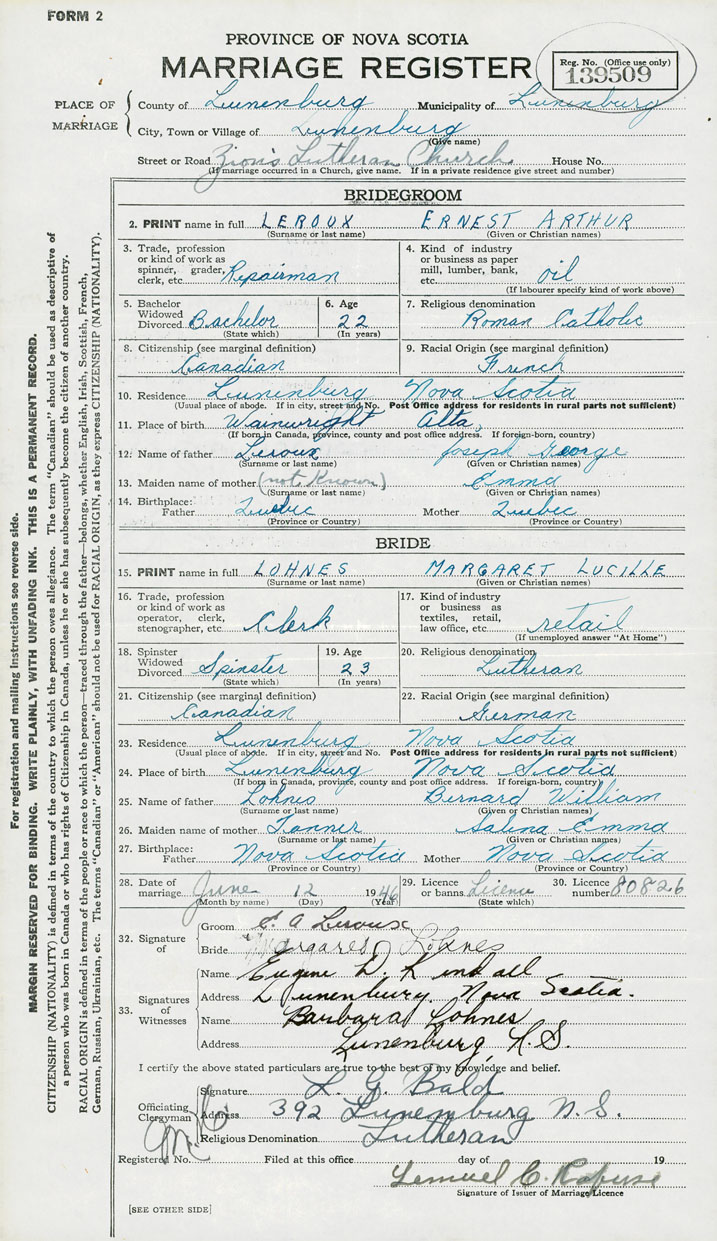 FORM 2
PROVINCE OF NOVA SCOTIA
MARRIAGE REGISTER
Reg. No. (Office use only)
139509
PLACE OF MARRIAGE
County of Lunenburg Municipality of Lunenburg
City, Town or Village of Lunenburg
(Give name)
Street or Road Zion's Lutheran Church House No.
(If marriage occurred in a Church, give name. If in a private residence give street and number)
BRIDEGROOM
2. PRINT name in full LEROUX ERNEST ARTHUR
(Surname or last name) (Given or Christian names)
3. Trade, profession or kind of work as spinner, grader, clerk, etc. Repairman
4. Kind of industry or business as paper mill, lumber, bank, etc. oil
(If labourer specify kind of work above)
5. Bachelor Widowed Divorced Bachelor
(State which)
6. Age 22
(In years)
7. Religious denomination
Roman Catholic
8. Citizenship (see marginal definition)
Canadian
9. Racial Origin (see marginal definition)
French
10. Residence Lunenburg Nova Scotia
(Usual place of abode. If in city, street and No. Post Office address for residents in rural parts not sufficient)
11. Place of birth Wainwright Alta,
(If born in Canada, province, county and post office address. If foreign-born, country)
12. Name of father Leroux Joseph George
(Surname or last name) (Given or Christian names)
13. Maiden name of mother (not known) Emma
(Surname or last name) (Given or Christian names)
14. Birthplace:
Father Quebec Mother Quebec
(Province or Country) (Province or Country)
BRIDE
15. PRINT name in full LOHNES MARGARET LUCILLE
(Surname or last name) (Given or Christian names)
16. Trade, profession or kind of work as operator, clerk, stenographer, etc. Clerk
17. Kind of industry or business as textiles, retail, law office, etc. retail
(If unemployed answer "At Home")
18. Spinster Widowed Divorced Spinster
(State which)
19. Age 23
(In years)
20. Religious denomination
Lutheran
21. Citizenship (see marginal definition)
Canadian
22. Racial Origin (see marginal definition)
German
23. Residence Lunenburg Nova Scotia
(Usual place of abode. If in city, street and No. Post Office address for residents in rural parts not sufficient)
24. Place of birth Lunenburg Nova Scotia
(If born in Canada, province, county and post office address. If foreign-born, country)
25. Name of father Lohnes Bernard William
(Surname or last name) (Given or Christian names)
26. Maiden name of mother Tanner Salina Emma
(Surname or last name) (Given or Christian names)
27. Birthplace:
Father Nova Scotia Mother Nova Scotia
(Province or Country) (Province or Country)
28. Date of marriage June 12 1946
(Month by name) (Day) (Year)
29. Licence or banns Licence
(State which)
30. Licence number 80826
32. Signature of
Groom E. A Leroux
Bride Margaret Lohnes
33. Signatures of Witnesses
Name Eugene W. Kindall
Address Lunenburg, Nova Scotia.
Name Barbara Lohnes
Address Lunenburg, N.S.
I certify the above stated particulars are true to the best of my knowledge and belief.
Officiating Clergyman
Signature L. G. Bald
Address 392 Lunenburg N.S.
Religious Denomination Lutheran
Registered No. Filed at this office day of 19
Lemuel C. Rafuse
Signature of Issuer of Marriage Licence
[SEE OTHER SIDE]
For registration and mailing instructions see reverse side.
MARGIN RESERVED FOR BINDING. WRITE PLAINLY, WITH UNFADING INK. THIS IS A PERMANENT RECORD.
CITIZENSHIP (NATIONALITY) is defined in terms of the country to which the person owes allegiance. The term "Canadian" should be used as descriptive of
a person who was born in Canada or who has rights of Citizenship in Canada, unless he or she has subsequently become the citizen of another country.
RACIAL ORIGIN is defined in terms of the people or race to which the person—traced through the father—belongs, whether English, Irish, Scottish, French,
German, Russian, Ukrainian, etc. The terms "Canadian" or "American" should not be used for RACIAL ORIGIN, as they express CITIZENSHIP (NATIONALITY).